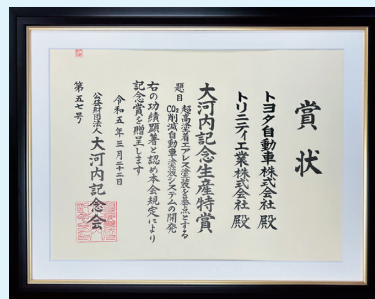 賞状
トヨタ自動車株式会社 殿
トリニティ工業株式会社 殿
大河内記念生産特賞
題目
超高塗着エアレス塗装を基点とする
CO₂削減自動車塗装システムの開発
右の功績顕著と認め本会規定により
記念賞を贈呈します
令和五年三月二十二日
公益財団法人 大河内記念会
第五七号